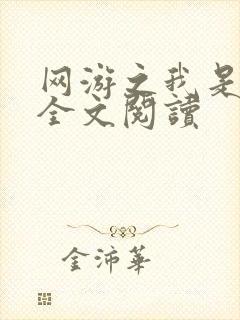 网游之我是
全文閱讀
金沛華